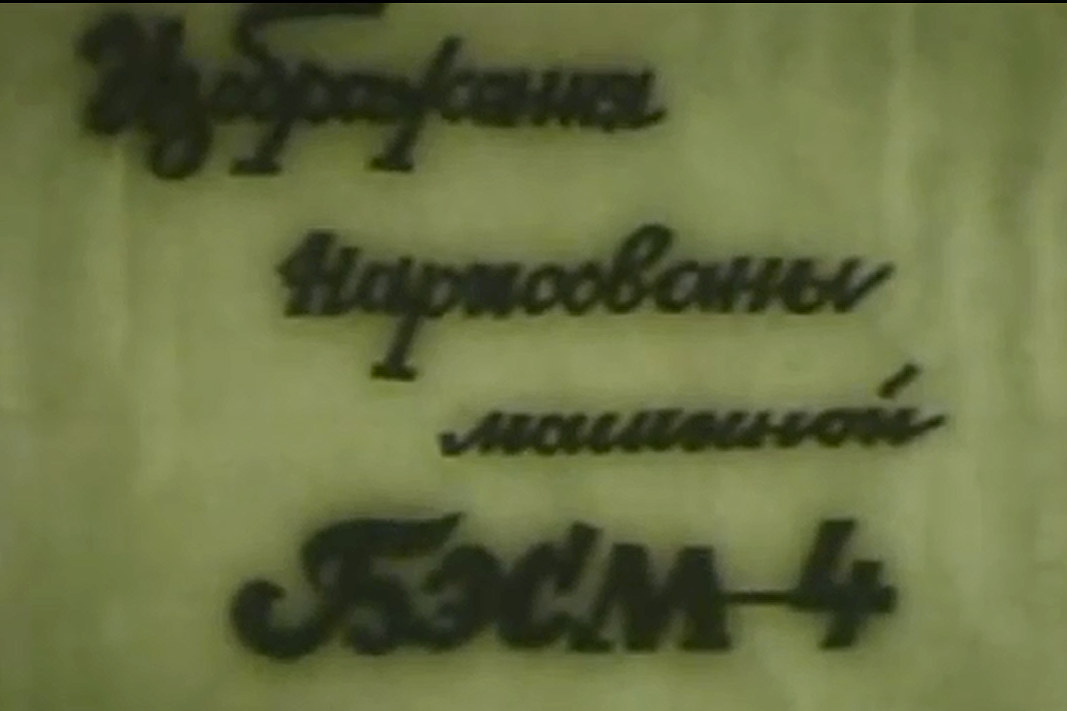 Изображения
Нарисованы
машиной
БЭСМ-4